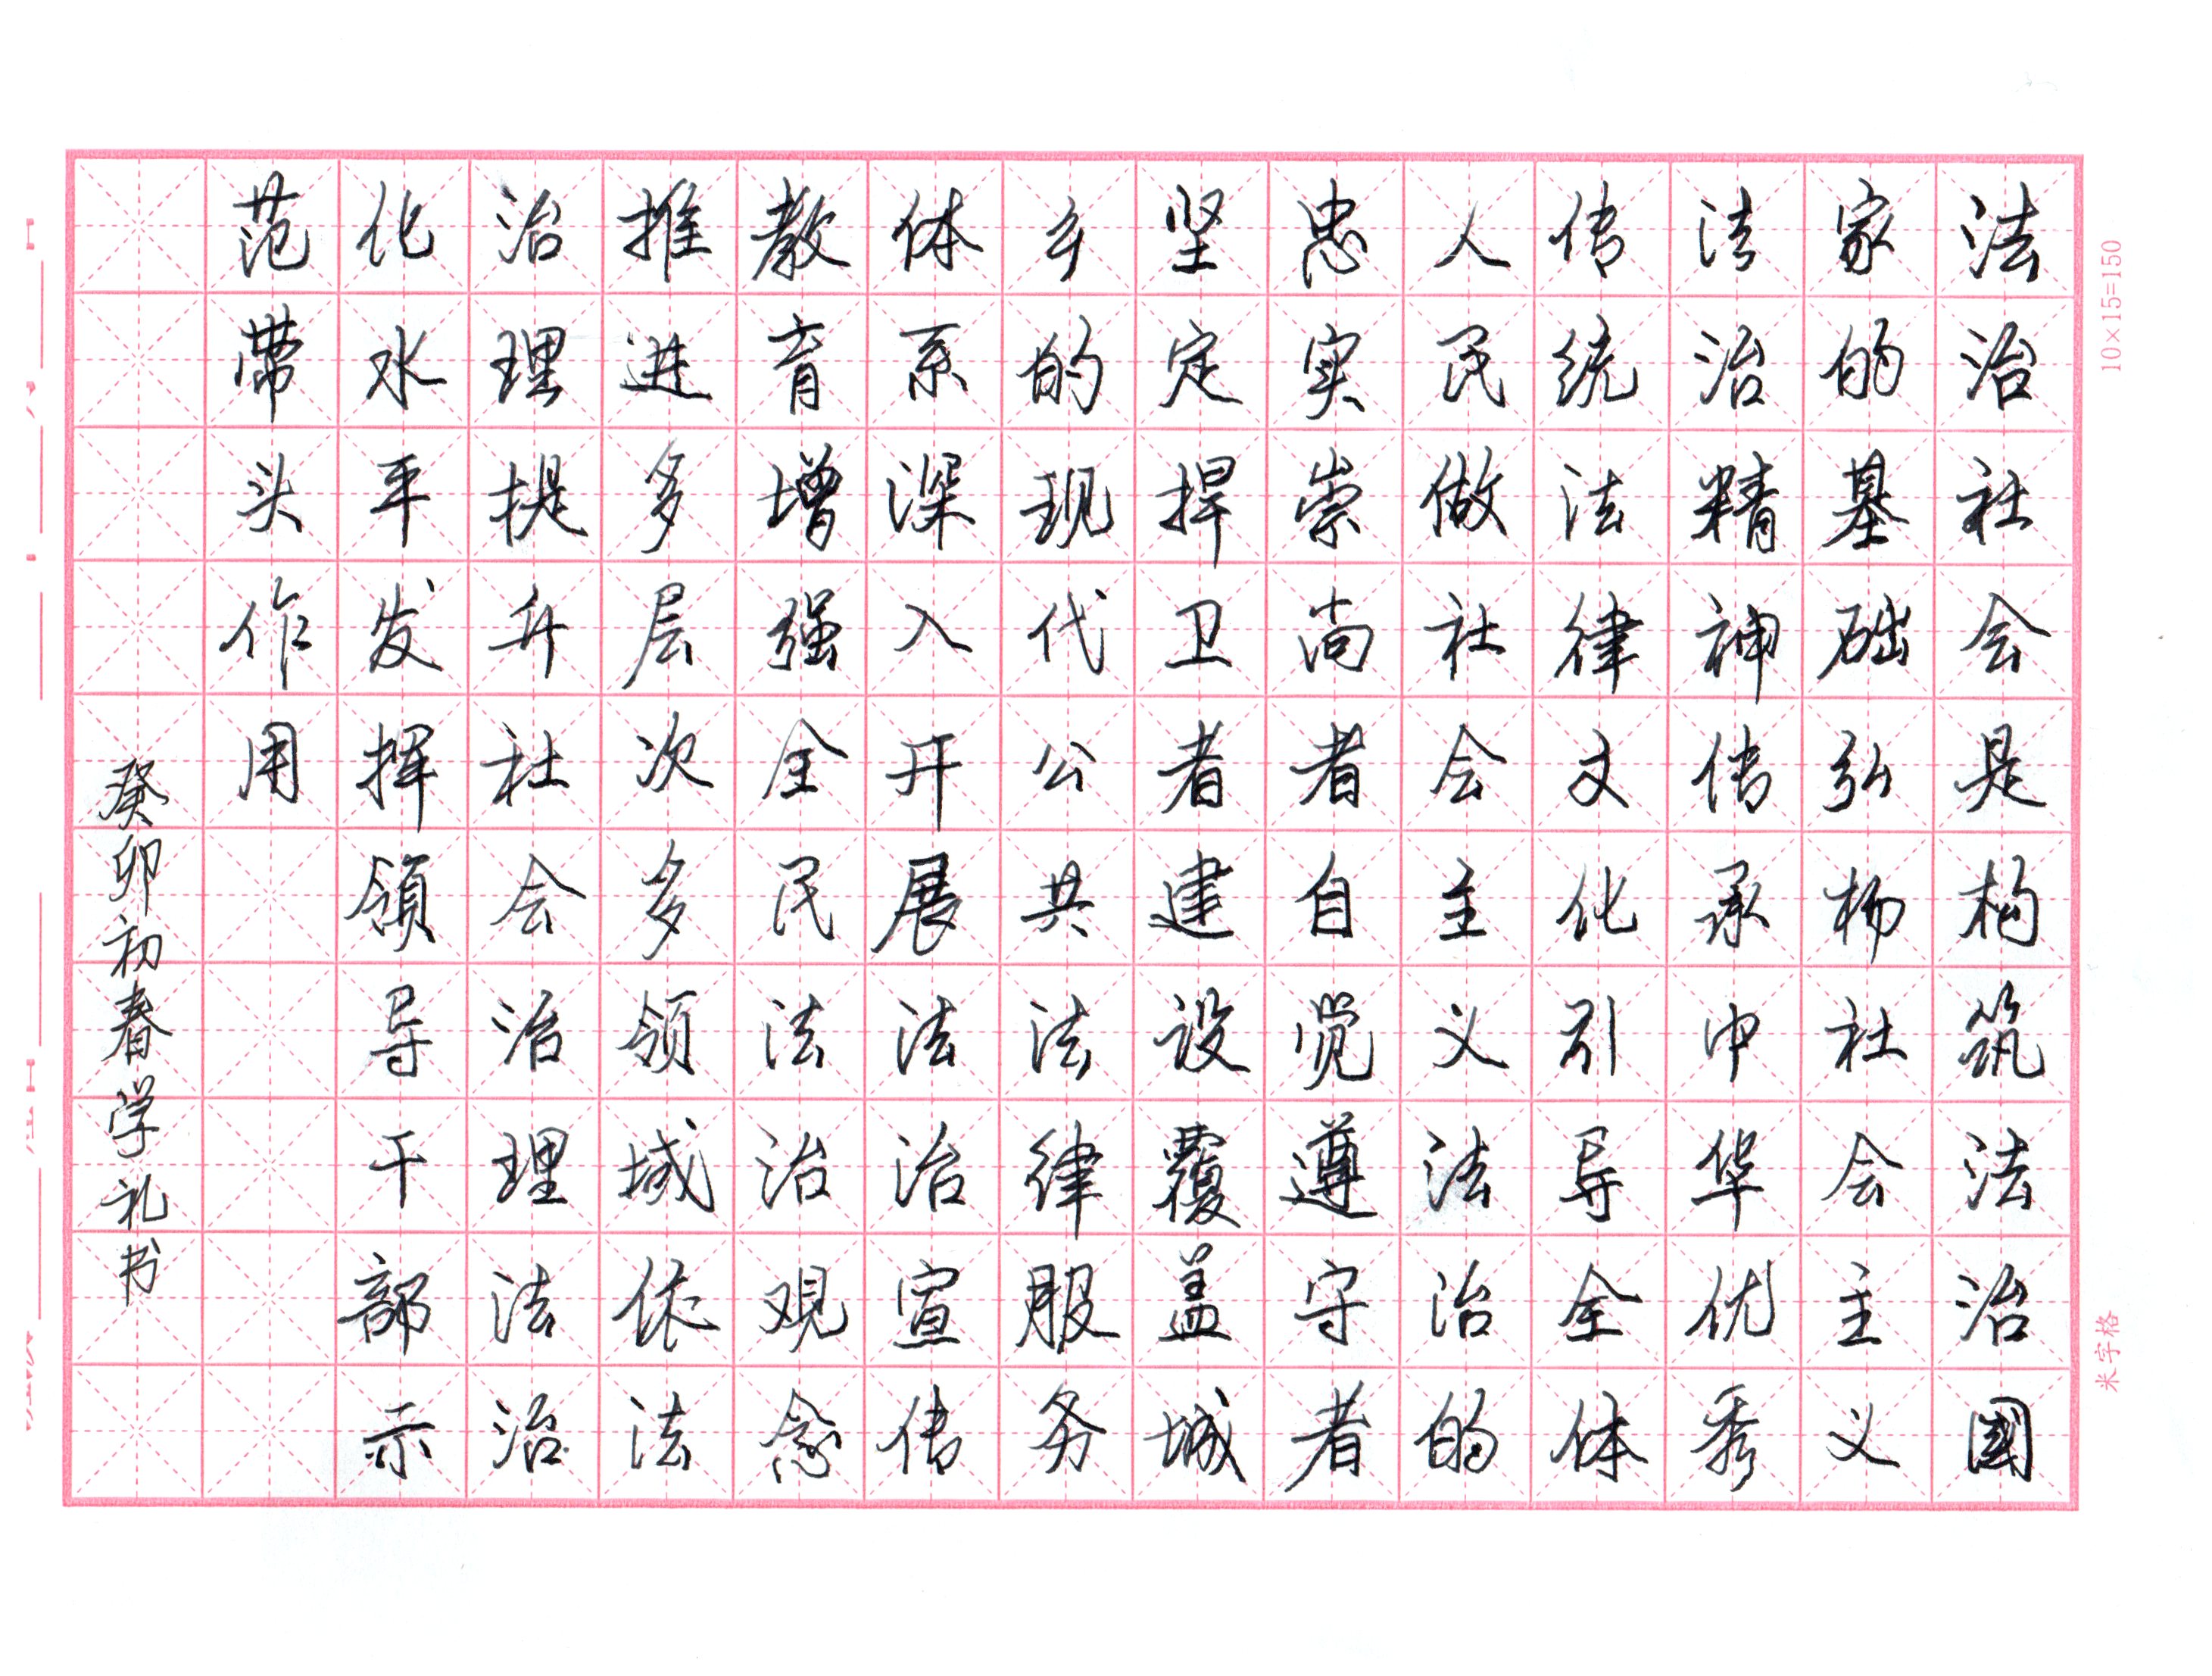 法治社会是构筑法治国
家的基础弘杨社会主义
法治精神传承中华优秀
传统法律文化引导全体
人民做社会主义法治的
忠实崇尚者自觉遵守者
坚定捍卫者建设覆盖城
乡的现代公共法律服务
体系深入开展法治宣传
教育增强全民法治观念
推进多层次多领域依法
治理提升社会治理法治
化水平发挥领导干部示
范带头作用
癸卯初春学礼书
10×15=150
米字格